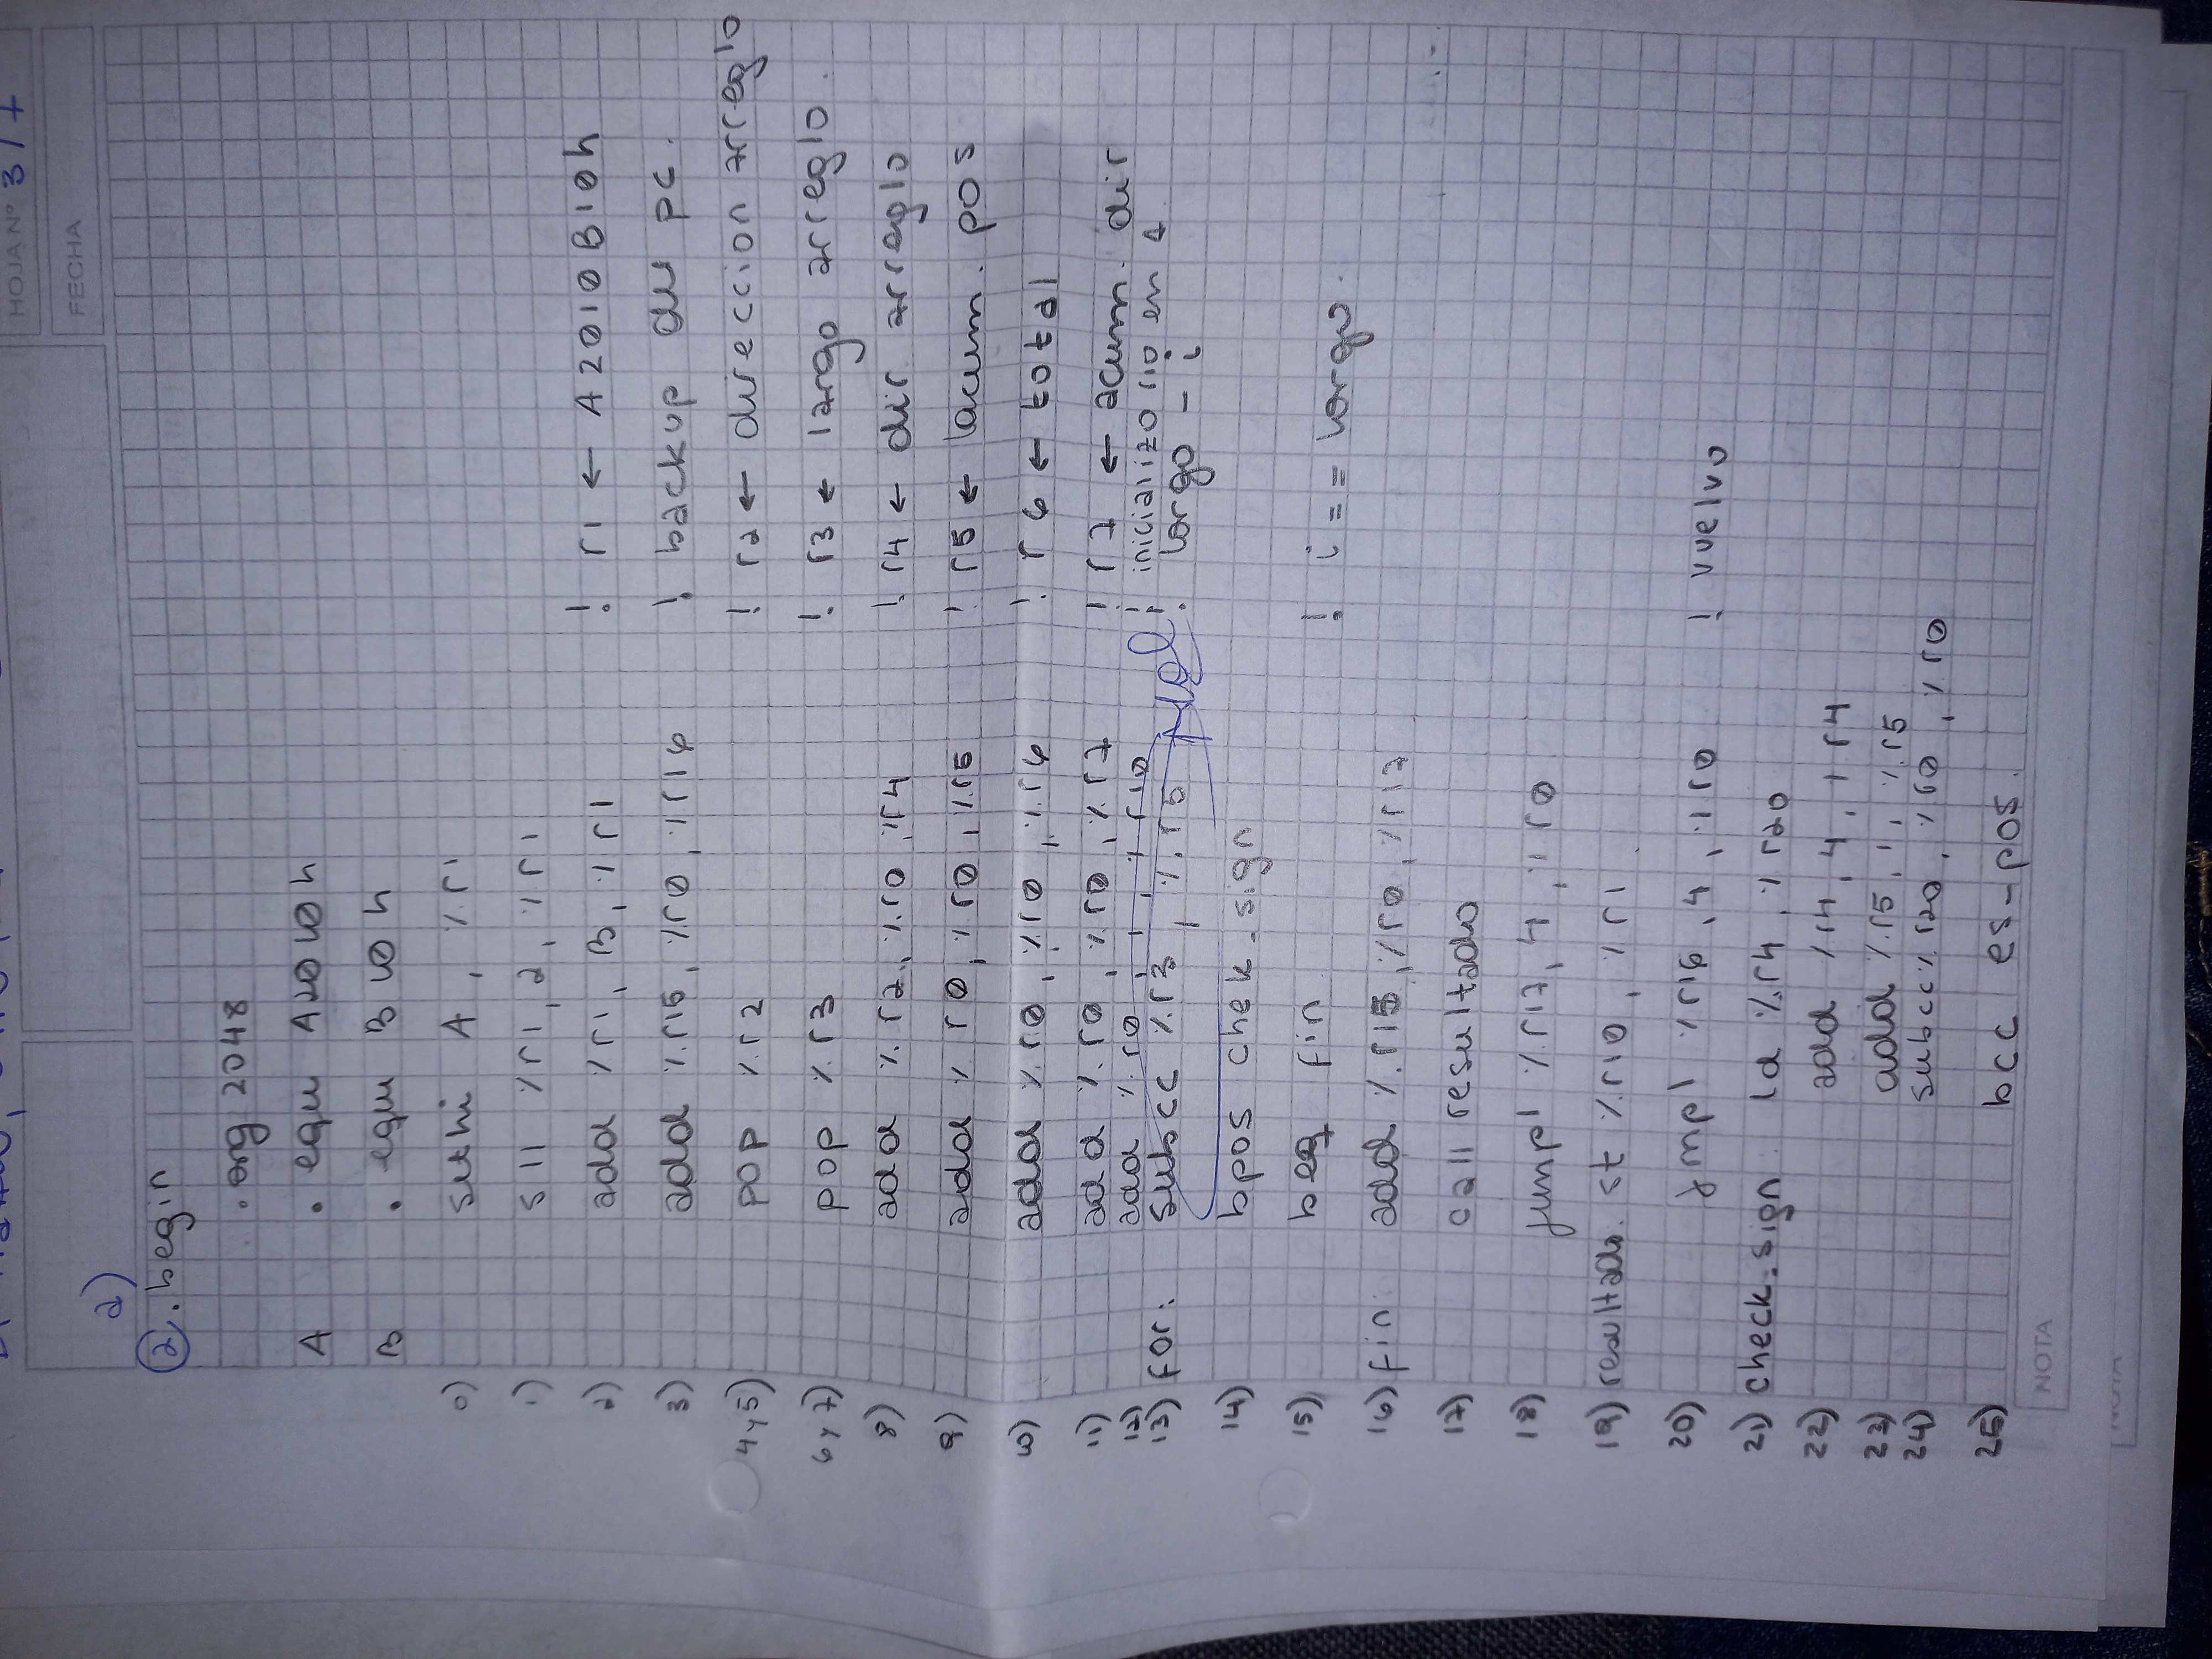 HOJA Nº 3/7
FECHA
a)
2 .begin
.org 2048
A .equ A2010h
B .equ B10h
0) sethi A, %r1
1) sll %r1, 2, %r1
2) add %r1, B, %r1 ! r1 ← A2010B10h
3) add %r15, %r0, %r16 ! backup del pc.
4y5) pop %r2 ! r2 ← direccion arreglo
6y7) pop %r3 ! r3 ← largo arreglo.
8) add %r2, %r0, %r4 ! r4 ← dir arreglo
9) add %r0, %r0, %r5 ! r5 ← acum. pos
10) add %r0, %r0, %r6 ! r6 ← total
11) add %r0, %r0, %r7 ! r7 ← acum. dir
12) add %r0, 1, %r10 ! inicializo r10 en 1
13) for: subcc %r3, %r5 ! largo - i
14) bpos chek_sign
15) beq fin ! i == largo.
16) fin: add %r15, %r0, %r17
17) call resultado
18) jmpl %r17, 4, %r0
19) resultado: st %r10, %r1
20) jmpl %r16, 4, %r0 ! vuelvo
21) check_sign: ld %r4, %r20
22) add %r4, 4, %r4
23) add %r5, 1, %r5
24) subcc %r20, %r0, %r0
25) bcc es_pos.
NOTA
NOTA